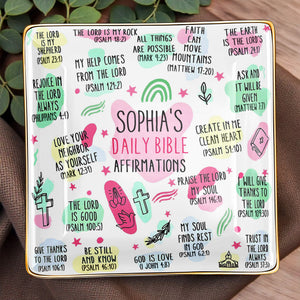 THE LORD
IS MY
SHEPHERD
(PSALM 23:1)
THE LORD IS MY ROCK
(PSALM 18:2)
ALL THINGS
ARE POSSIBLE
(MARK 9:23)
FAITH
CAN
MOVE
MOUNTAINS
(MATTHEW 17:20)
THE EARTH
IS THE LORD'S
(PSALM 24:1)
MY HELP COMES
FROM THE LORD
(PSALM 121:2)
REJOICE IN
THE LORD
ALWAYS
(PHILIPPIANS 4:4)
ASK AND
IT WILL BE
GIVEN
(MATTHEW 7:7)
SOPHIA'S
DAILY BIBLE
AFFIRMATIONS
LOVE YOUR
NEIGHBOR
AS YOURSELF
(MARK 12:31)
CREATE IN ME
CLEAN HEART
(PSALM 51:10)
PRAISE THE LORD
MY SOUL
(PSALM 146:1)
I WILL GIVE
THANKS TO
THE LORD
(PSALM 109:30)
THE LORD
IS GOOD
(PSALM 100:5)
MY SOUL
FINDS REST
IN GOD
(PSALM 62:1)
GIVE THANKS
TO THE LORD
(PSALM 136:1)
BE STILL
AND KNOW
(PSALM 46:10)
GOD IS LOVE
(1 JOHN 4:8)
TRUST IN
THE LORD
ALWAYS
(PSALM 37:3)